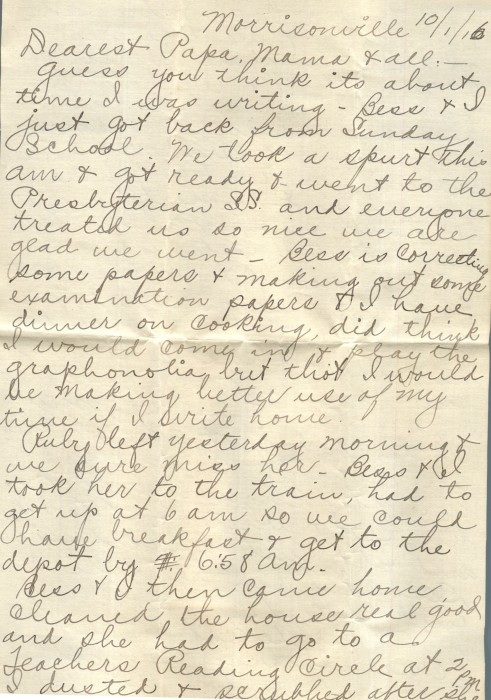 Morrisonville 10/1/16
Dearest Papa, Mama & all: –
guess you think its about
time I was writing – Bess & I
just got back from Sunday
School. We took a spurt this
am & got ready & went to the
Presbyterian S.S. and everyone
treated us so nice we are
glad we went – Bess is correcting
some papers & making out some
examination papers & I have
dinner on cooking, did think
I would come in & play the
graphonolia but thot I would
be making better use of my
time if I write home.
Ruby left yesterday morning &
we sure miss her – Bess & I
took her to the train, had to
get up at 6 am so we could
have breakfast & get to the
depot by 6:58 Am.
Bess & I then came home
cleaned the house real good
and she had to go to a
Teachers Reading Circle at 2 PM
I dusted & scrubbed after